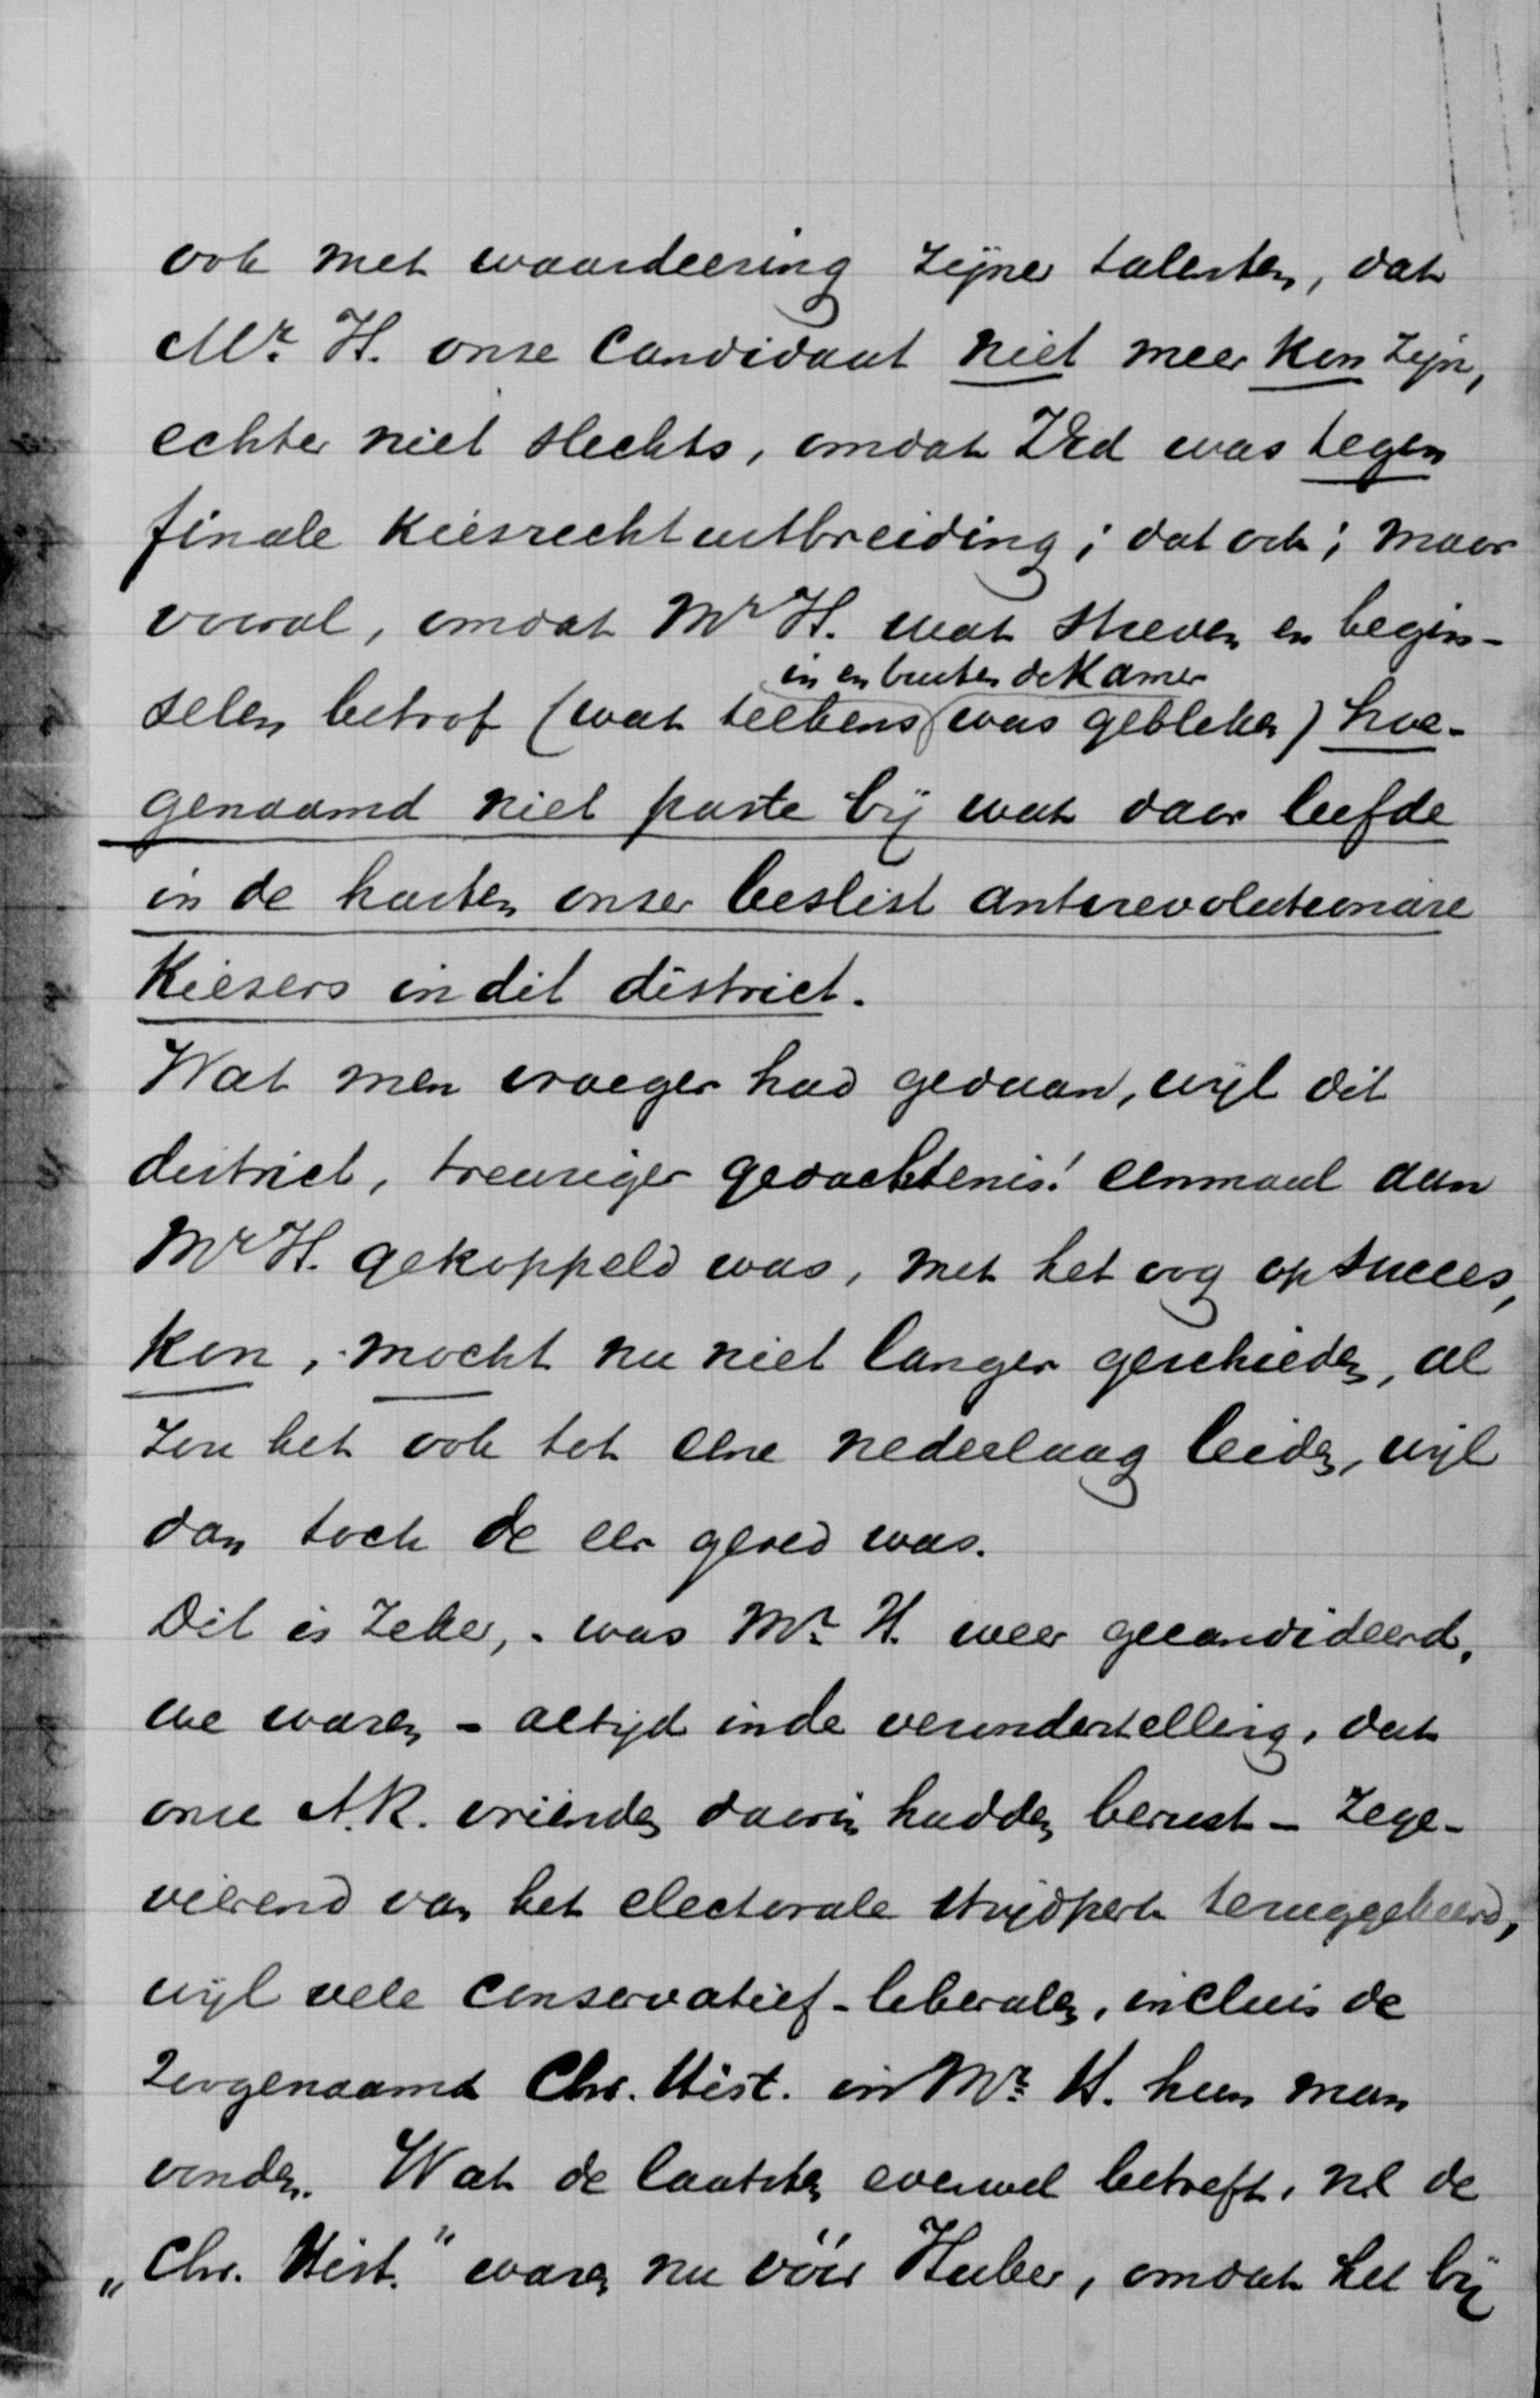 ook met waardeering zijner talenten, dat
Mr. H. onze Candidaat niet meer kon zijn,
echter niet slechts, omdat ZEd was tegen
finale Kiesrechtuitbreiding; dat ook; maar
vooral, omdat Mr H. wat streven en begin-
in en buiten de Kamer
selen betrof (wat telkens was gebleken) hoe-
genaamd niet paste bij wat daar leefde
in de harten onzer beslist antirevolutionaire
Kiezers in dit district.
Wat men vroeger had gedaan, wijl dit
district, treuriger gedachtenis! eenmaal aan
Mr H. gekoppeld was, met het oog op succes,
kon, mocht nu niet langer geschieden, al
zou het ook tot eene nederlaag leiden, wijl
dan toch de eer gered was.
Dit is zeker, - was Mr. H. weer gecandideerd,
we waren - altijd in de veronderstelling, dat
onze A.R. vrienden daarin hadden berust - zege-
vierend van het electorale strijdperk teruggekeerd,
wijl vele Conservatief-liberalen, incluis de
zoogenaamd Chr. Hist. in Mr. H. hun man
vonden. Wat de laatsten evenwel betreft, nl de
„Chr. Hist." waren nu vóór Huber, omdat het bij